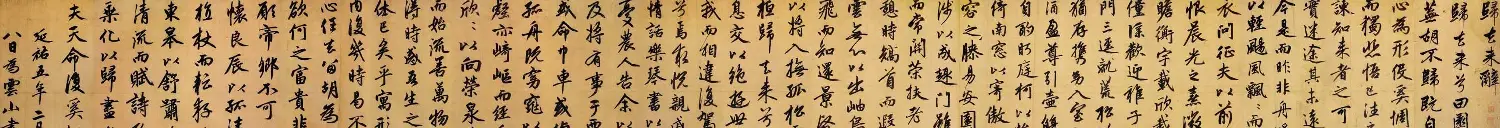 歸去來辭
歸去來兮田園
蕪胡不歸既自
心為形役奚惆
而獨悲悟已往之
諫知來者之可
實迷途其未遠
今是而昨非舟
以輕颺風飄飄而
衣問征夫以前
恨晨光之熹微
瞻衡宇載欣載
僮僕歡迎稚子
門三逕就荒松
猶存攜幼入室
酒盈尊引壺觴
自酌眄庭柯以
倚南窗以寄傲
容之膝易安園
涉以成趣門雖
而常關策扶老
憩時矯首而遐
雲無心以出岫
飛而知還景翳
以將入撫孤松
桓歸去來兮
息交以絕遊世
我而相違復駕
兮焉求悅親戚
情話樂琴書以
憂農人告余以
及將有事乎西
或命巾車或
孤舟既窈窕以
壑亦崎嶇而經
欣欣以向榮泉
而始流善萬物
得時感吾生之
休已矣乎寓形
內復幾時曷不
心任去留胡為
欲何之富貴非
願帝鄉不可
懷良辰以孤往
植杖而耘耔
東皋以舒嘯
清流而賦詩
乘化以歸盡
夫天命復奚
延祐五年二月
八日為雲山書